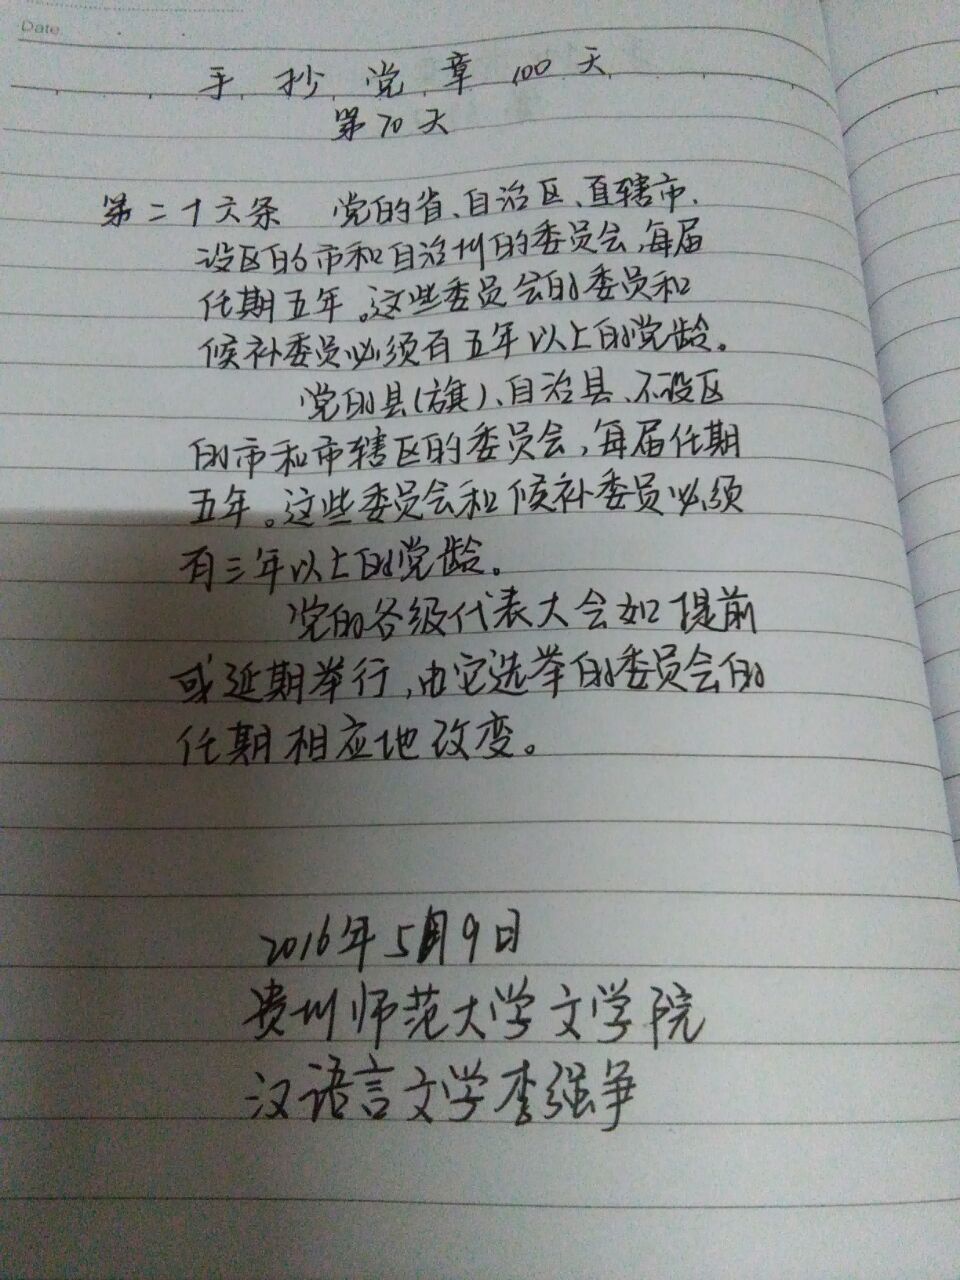 Date
手抄党章100天
第70天
第二十六条 党的省、自治区、直辖市、
设区的市和自治州的委员会,每届
任期五年。这些委员会的委员和
候补委员必须有五年以上的党龄。
党的县(旗)、自治县、不设区
的市和市辖区的委员会,每届任期
五年。这些委员会和候补委员必须
有三年以上的党龄。
党的各级代表大会如提前
或延期举行,由它选举的委员会的
任期相应地改变。
2016年5月9日
贵州师范大学文学院
汉语言文学李强争